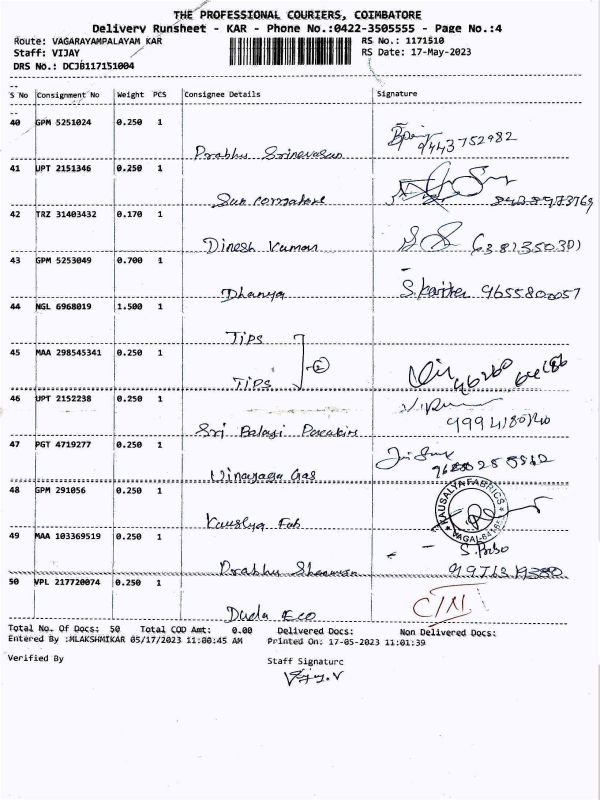 THE PROFESSIONAL COURIERS, COIMBATORE
Delivery Runsheet - KAR - Phone No.:0422-3505555 - Page No.:4
Route: VAGARAYAMPALAYAM KAR
RS No.: 1171510
Staff: VIJAY
RS Date: 17-May-2023
DRS No.: DCJB117151004
S No Consignment No Weight PCS Consignee Details Signature
40 GPM 5251024 0.250 1
Prabhu Srinevasan 9443752982
41 UPT 2151346 0.250 1
Sun
42 TRZ 31403432 0.170 1
Dinesh Kumar 6381350301
43 GPM 5253049 0.700 1
Dhanya 9655800057
44 NGL 6968019 1.500 1
TIPS
45 MAA 298545341 0.250 1
TIPS 2
46 UPT 2152238 0.250 1
Sri Balaji
47 PGT 4719277 0.250 1
Vinayaga Gas
48 GPM 291056 0.250 1
Kauslya Fab
KAUSALYA FABRICS
49 MAA 103369519 0.250 1
Prabhu
50 VPL 217720074 0.250 1
Duda Eco C/N
Total No. Of Docs: 50 Total COD Amt: 0.00 Delivered Docs: Non Delivered Docs:
Entered By :MLAKSHMIKAR 05/17/2023 11:00:45 AM Printed On: 17-05-2023 11:01:39
Verified By Staff Signature
Vijay.V